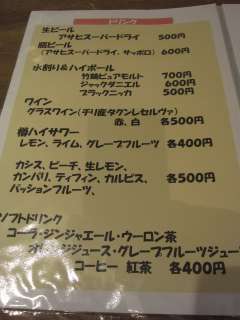 ドリンク
生ビール
アサヒスーパードライ 500円
瓶ビール
(アサヒスーパードライ、サッポロ) 600円
水割り&ハイボール
竹鶴ピュアモルト 700円
ジャックダニエル 600円
ブラックニッカ 500円
ワイン
グラスワイン(チリ産タクンレセルヴァ)
赤、白 各500円
樽ハイサワー
レモン、ライム、グレープフルーツ 各400円
カシス、ピーチ、生レモン、
カンパリ、ティフィン、カルピス、 各500円
パッションフルーツ、
ソフトドリンク
コーラ・ジンジャエール・ウーロン茶
オレンジジュース・グレープフルーツジュー
コーヒー 紅茶 各400円